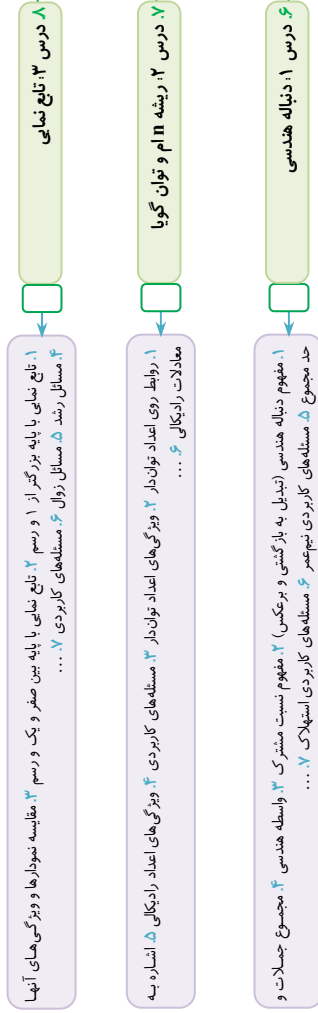 ۶. درس ۱: دنباله هندسی
۱. مفهوم دنباله هندسی (تبدیل به بازگشتی و برعکس) ۲. مفهوم نسبت مشترک ۳. واسطه هندسی ۴. مجموع جملات و
حد مجموع ۵. مسئله‌های کاربردی نیم‌عمر ۶. مسئله‌های کاربردی استهلاک ۷. ...
۷. درس ۲: ریشه n ام و توان گویا
۱. روابط روی اعداد توان‌دار ۲. ویژگی‌های اعداد توان‌دار ۳. مسئله‌های کاربردی ۴. ویژگی‌های اعداد رادیکالی ۵. اشاره به
معادلات رادیکالی ۶. ...
۸. درس ۳: تابع نمایی
۱. تابع نمایی با پایه بزرگتر از ۱ و رسم ۲. تابع نمایی با پایه بین صفر و یک و رسم ۳. مقایسه نمودارها و ویژگی‌های آنها
۴. مسائل رشد ۵. مسائل زوال ۶. مسئله‌های کاربردی ۷. ...